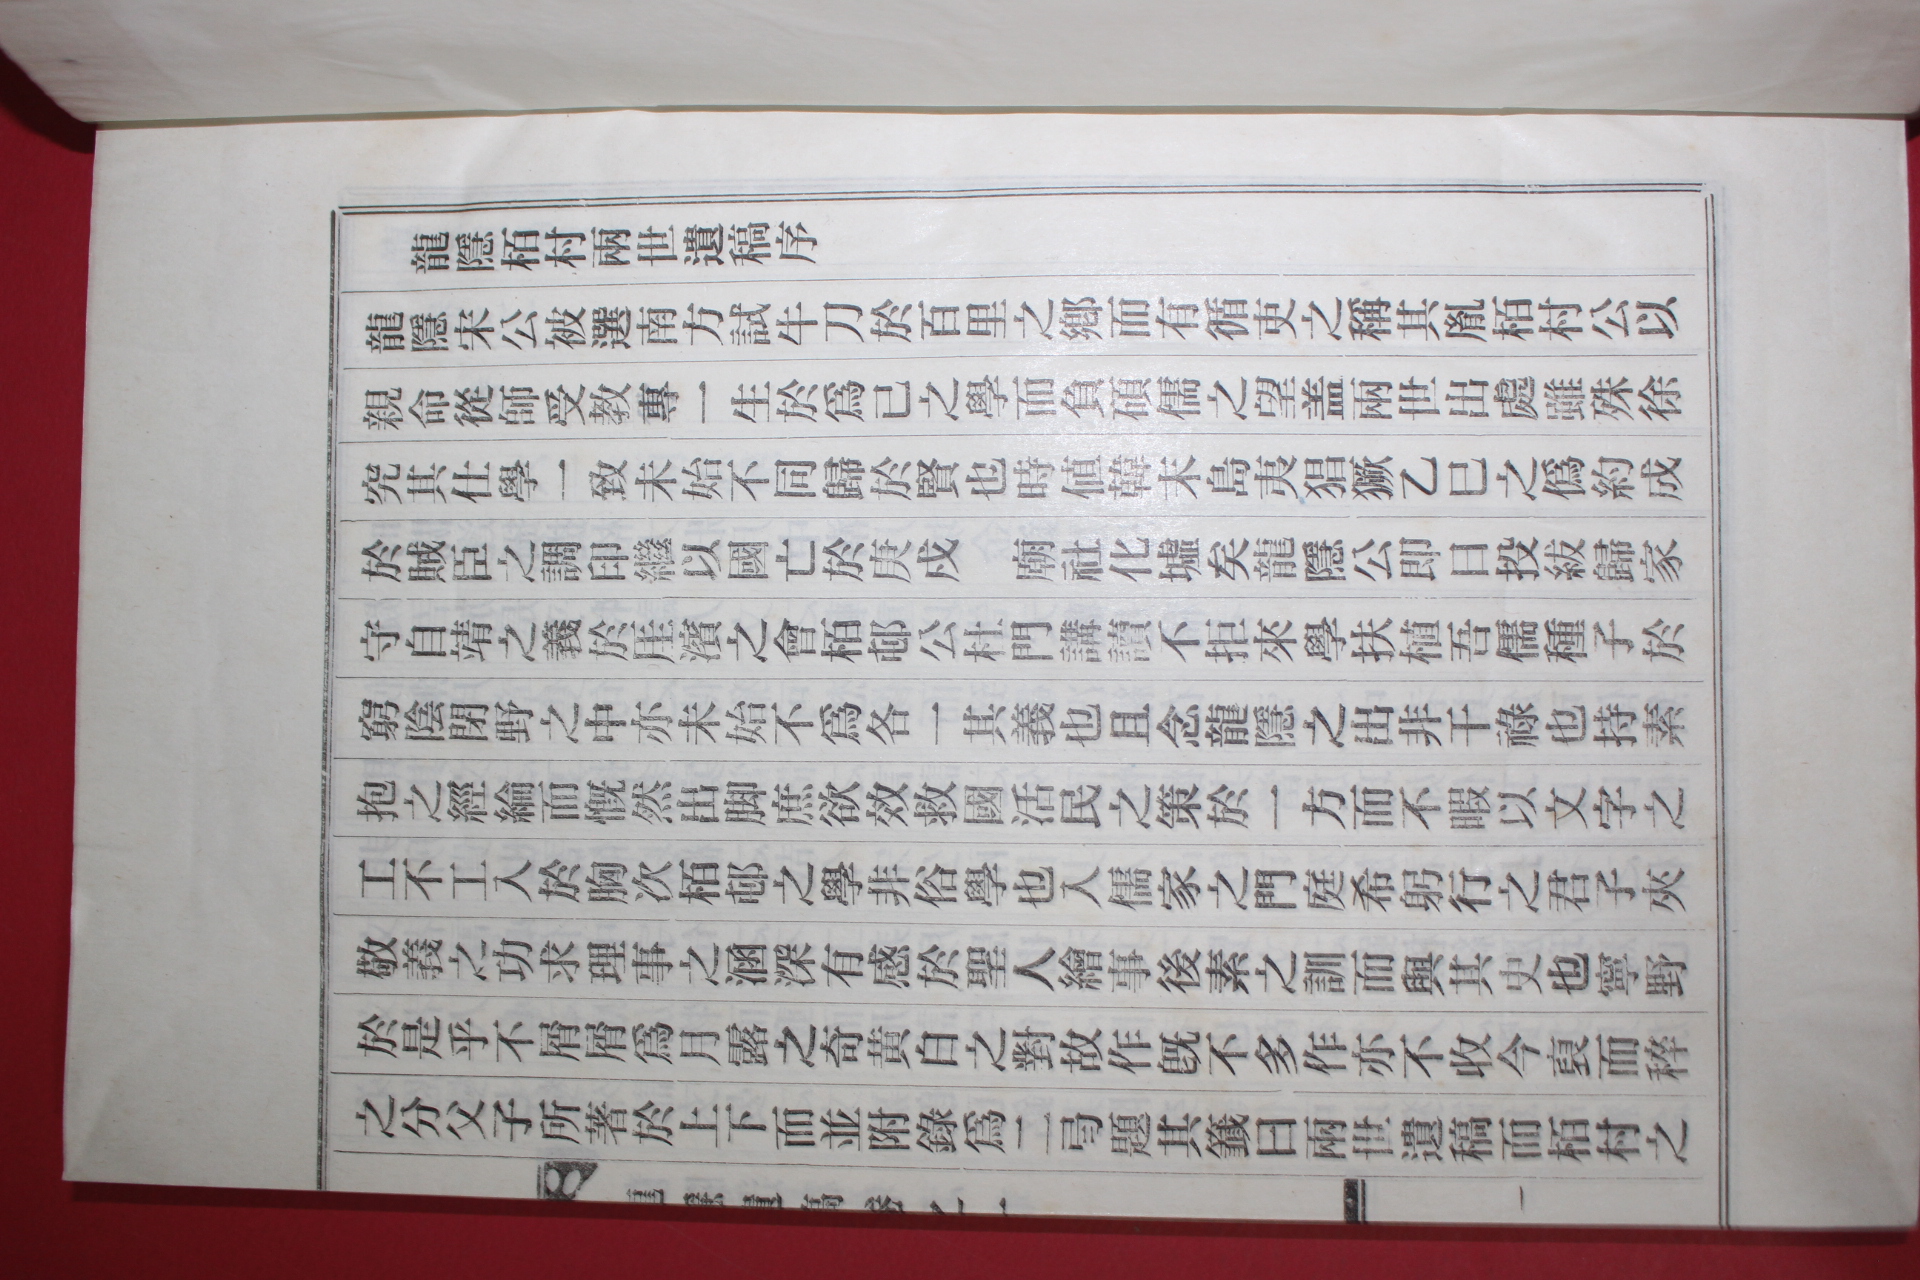 龍隱栢村兩世遺稿序
龍隱宋公被選南方試牛刀於百里之鄕而有循吏之稱其胤栢村公以
親命從師受敎專一生於爲己之學而負碩儒之望盖兩世出處雖殊徐
究其仕學一致未始不同歸於賢也時値韓末島夷猖獗乙巳之僞約成
於賊臣之調印繼以國亡於庚戌　廟社化墟矣龍隱公即日投紱歸家
守自靖之義於厓濱之會栢邨公杜門講讀不拒來學扶植吾儒種子於
窮陰閉野之中亦未始不爲各一其義也且念龍隱之出非干祿也持素
抱之經綸而慨然出脚庶欲效救國活民之策於一方而不暇以文字之
工不工入於胸次栢邨之學非俗學也入儒家之門庭希躬行之君子夾
敬義之功求理事之涵深有感於聖人繪事後素之訓而與其史也寧野
於是乎不屑屑爲月露之奇黄白之對故作旣不多作亦不收今裒而稡
之分父子所著於上下而並附錄爲二㢧題其籤曰兩世遺稿而栢村之
龍隱遺稿卷之一
一